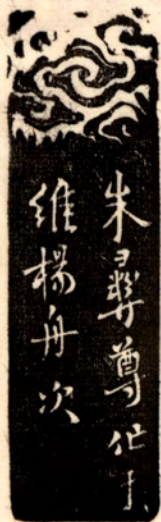 朱彝尊作于
維楊舟次